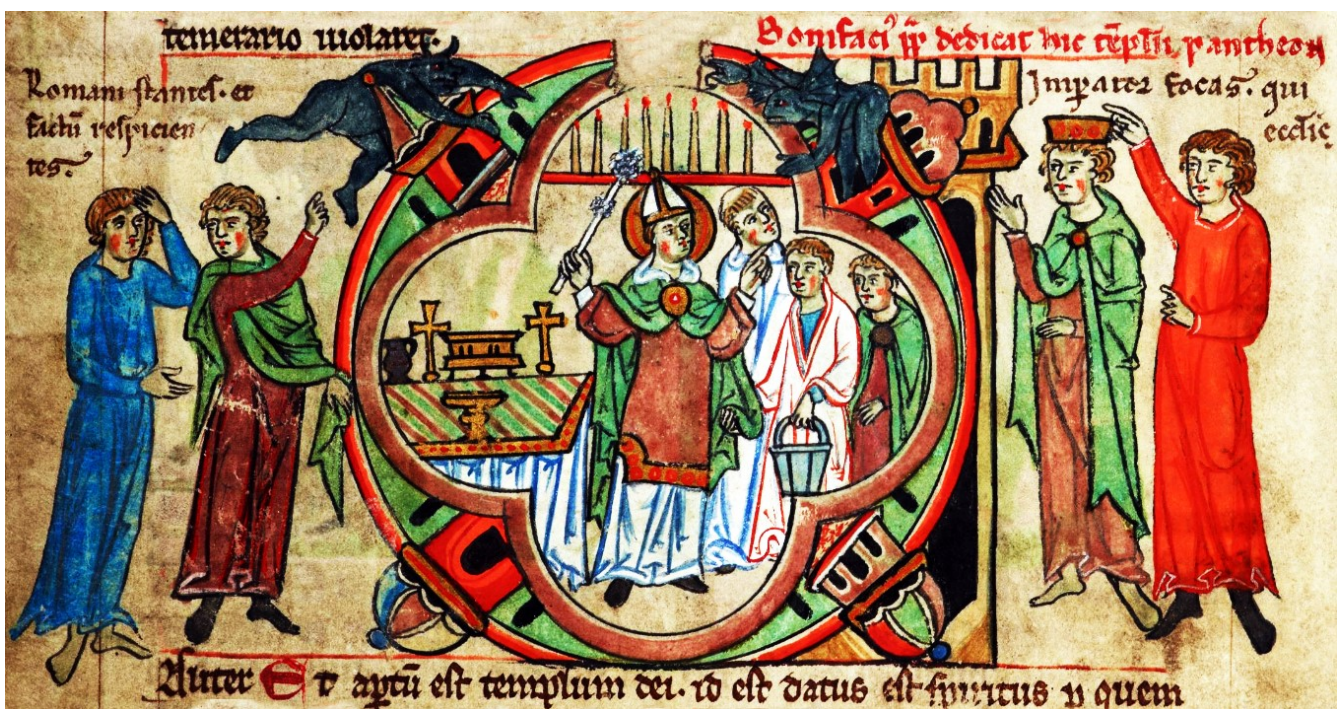 temerario uiolaret.
Bonifaci' pp dedicat hic templū, pantheon
Romani stantes. et
factū respicien
tes.
Imperator focas. qui
ecclie
Aliter Et aptū est templum dei. id est datus est spiritus p quem